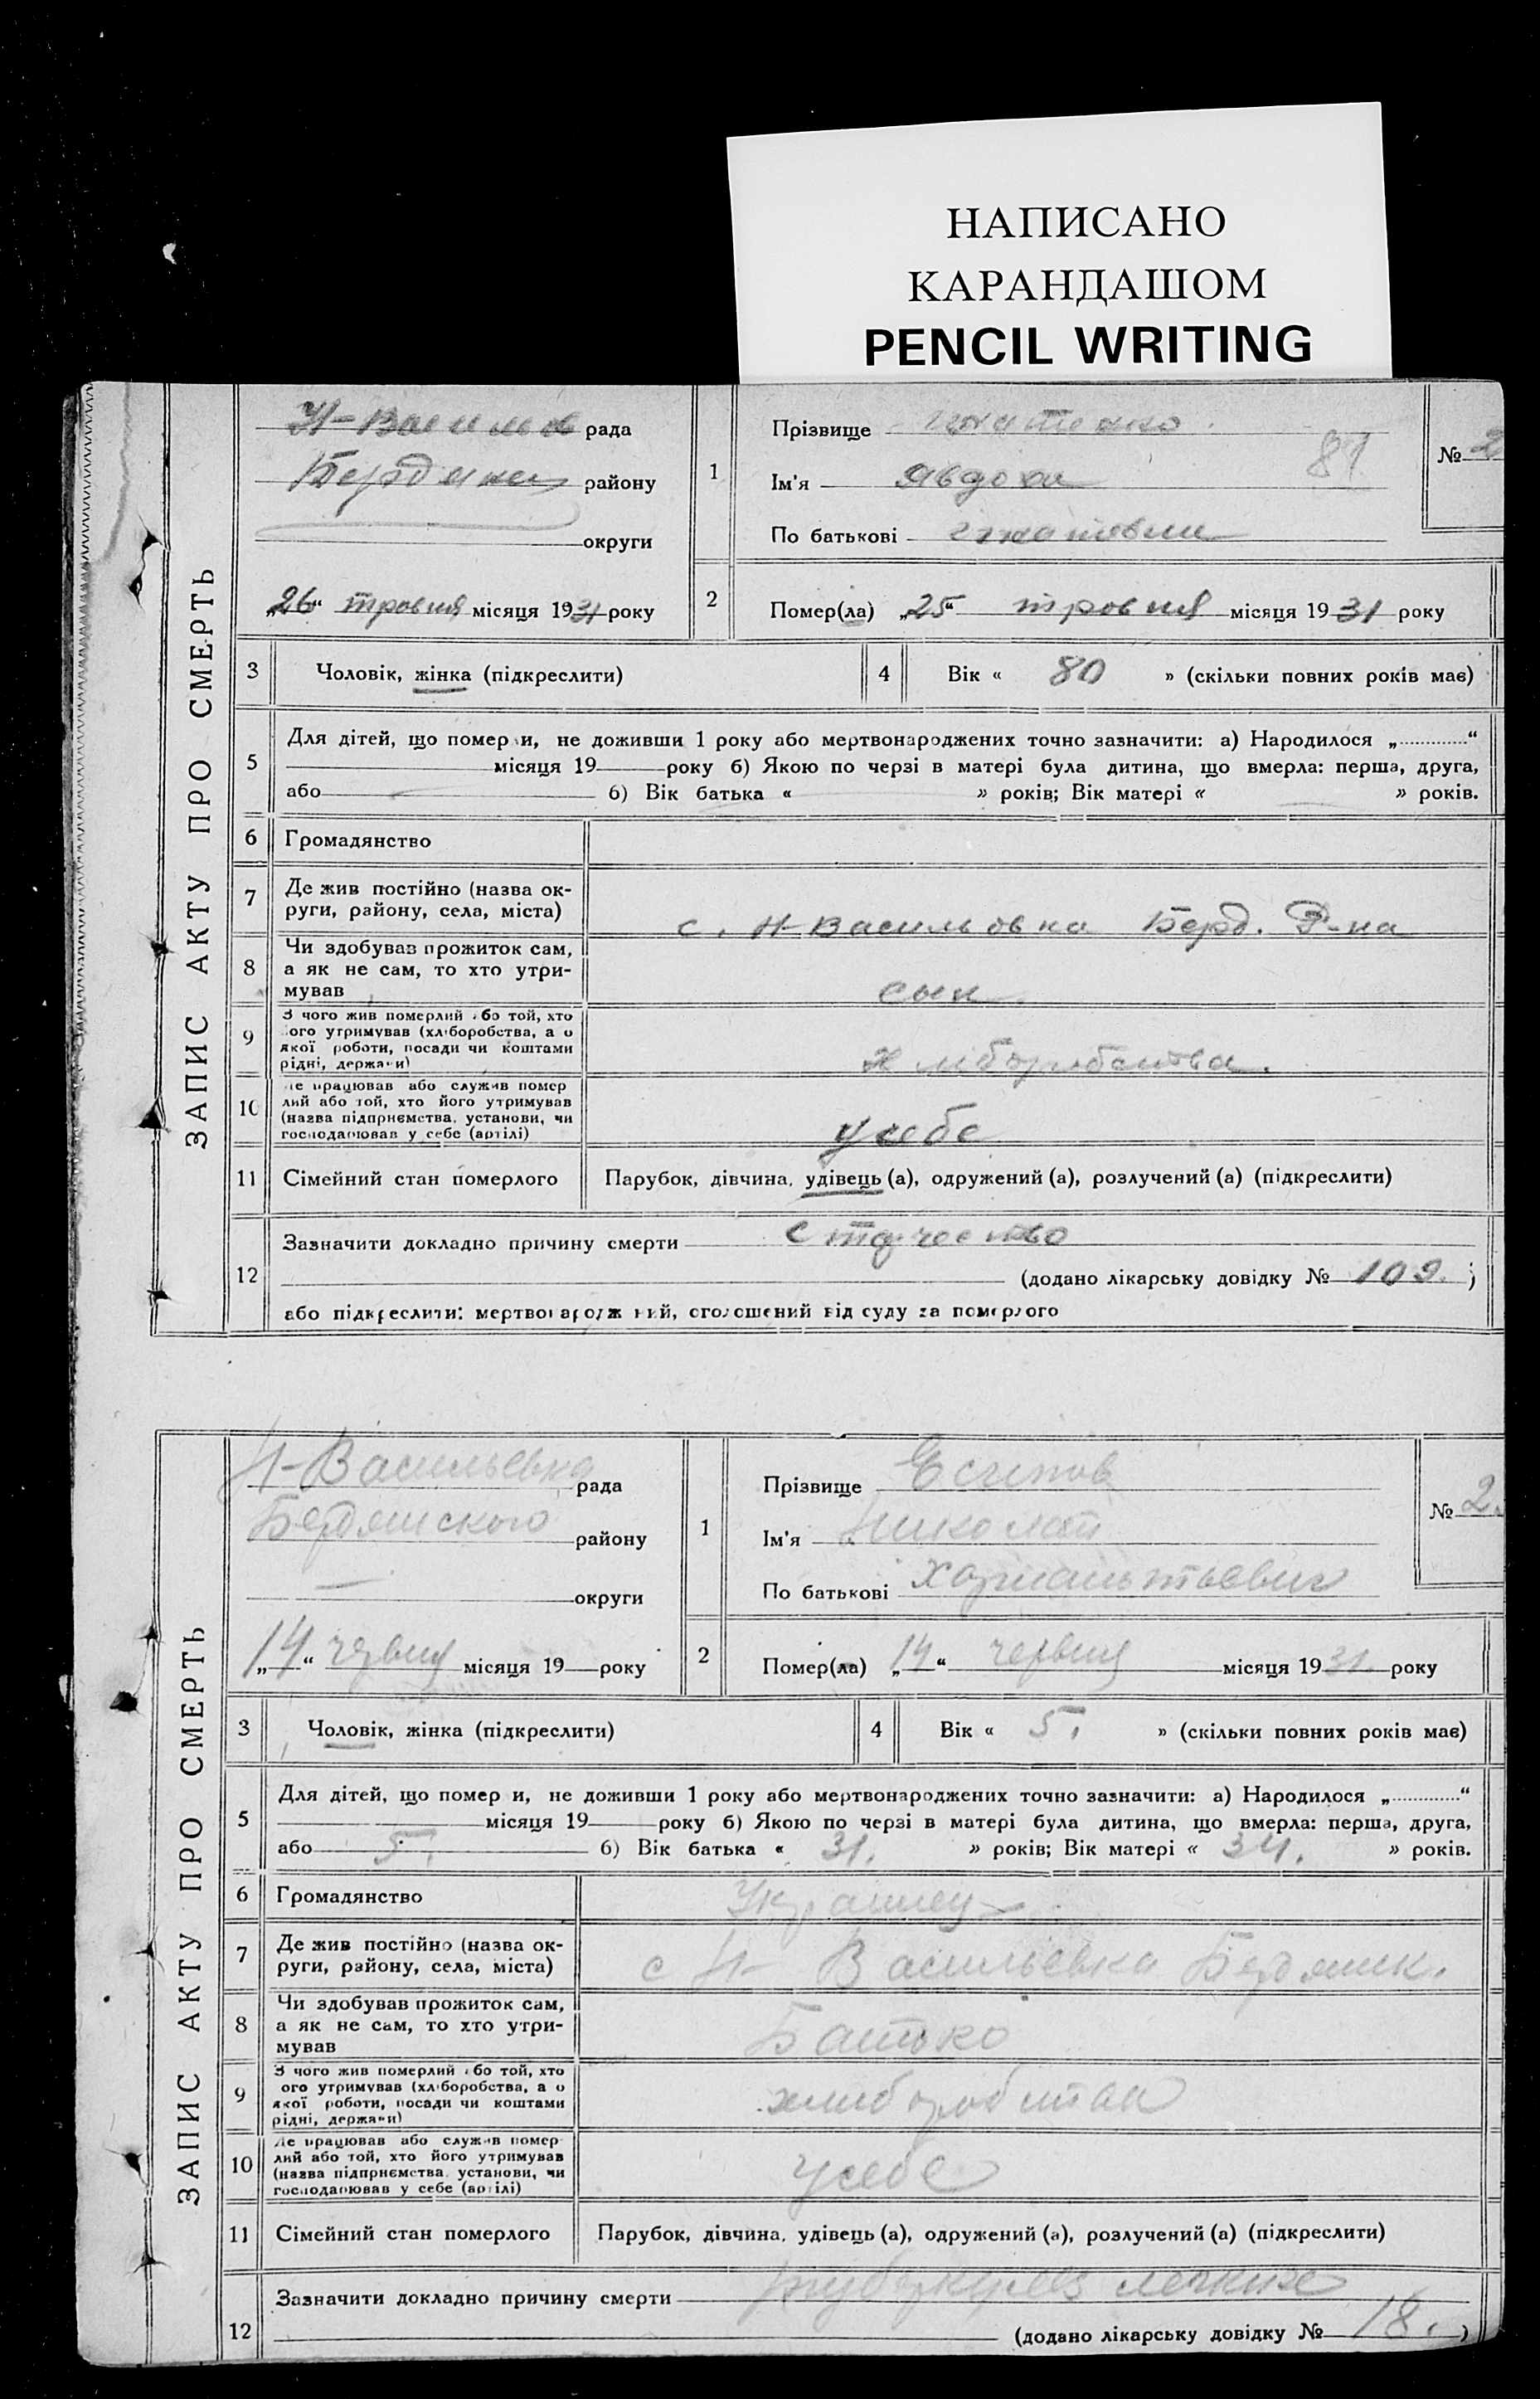 НАПИСАНО
КАРАНДАШОМ
PENCIL WRITING
ЗАПИС АКТУ ПРО СМЕРТЬ
рада
району
округи
„26“ тровня місяця 1931 року
1
Прізвище
Ім'я Явдоха
81
По батькові
№ 2
2
Помер(ла) „25“ тровня місяця 1931 року
3
Чоловік, жінка (підкреслити)
4
Вік « 80 » (скільки повних років має)
5
Для дітей, що помер и, не доживши 1 року або мертвонароджених точно зазначити: а) Народилося „ “
місяця 19 року б) Якою по черзі в матері була дитина, що вмерла: перша, друга,
або б) Вік батька « » років; Вік матері « » років.
6
Громадянство
7
Де жив постійно (назва ок-
руги, району, села, міста)
с. Н-Васильовка Берд. Р-на
8
Чи здобував прожиток сам,
а як не сам, то хто утри-
мував
сын
9
З чого жив померлий бо той, хто
ого утримував (хліборобства, а о
якої роботи, посади чи коштами
рідні, держави)
10
е працював або служив помер
лий або той, хто його утримував
(назва підприємства, установи, чи
господарював у себе (артілі)
у себе
11
Сімейний стан померлого
Парубок, дівчина, удівець (а), одружений (а), розлучений (а) (підкреслити)
12
Зазначити докладно причину смерти
(додано лікарську довідку № 109. )
або підкреслити: мертвонароджений, оголошений від суду за померлого
ЗАПИС АКТУ ПРО СМЕРТЬ
Н-Васильевка рада
Бердянского району
округи
„14“ червня місяця 19 року
1
Прізвище Есипов
Ім'я Николай
По батькові
№ 2.
2
Помер(ла) „14“ червня місяця 1931. року
3
Чоловік, жінка (підкреслити)
4
Вік « 5. » (скільки повних років має)
5
Для дітей, що помер и, не доживши 1 року або мертвонароджених точно зазначити: а) Народилося „ “
місяця 19 року б) Якою по черзі в матері була дитина, що вмерла: перша, друга,
або 5. б) Вік батька « 31. » років; Вік матері « 34. » років.
6
Громадянство
Украинец
7
Де жив постійно (назва ок-
руги, району, села, міста)
с Н- Васильевка Бердянск.
8
Чи здобував прожиток сам,
а як не сам, то хто утри-
мував
Батько
9
З чого жив померлий бо той, хто
ого утримував (хліборобства, а о
якої роботи, посади чи коштами
рідні, держави)
10
Де працював або служив помер
лий або той, хто його утримував
(назва підприємства, установи, чи
господарював у себе (артілі)
у себе
11
Сімейний стан померлого
Парубок, дівчина, удівець (а), одружений (а), розлучений (а) (підкреслити)
12
Зазначити докладно причину смерти туберкулез легких
(додано лікарську довідку № 18. )